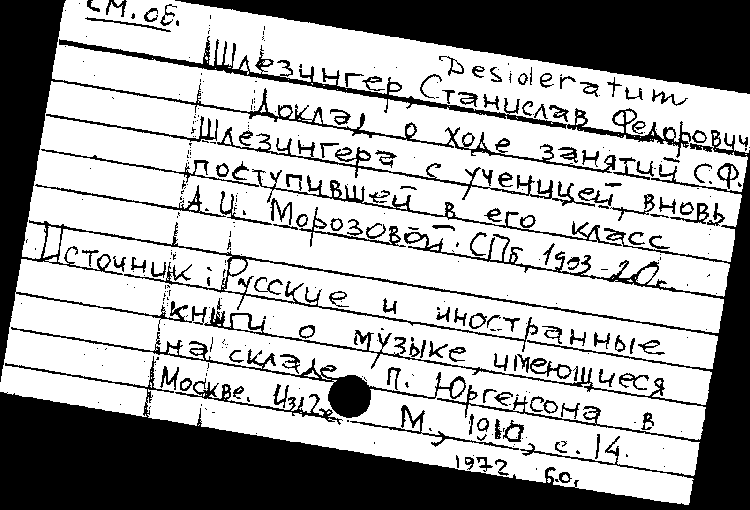 см. об.
Desideratum
Шлезингер, Станислав Федорович
Доклад о ходе занятий С.Ф.
Шлезингера с ученицей, вновь
поступившей в его класс
А.И. Морозовой. СПб, 1903 - 20 с.
Источник: Русские и иностранные
книги о музыке, имеющиеся
на складе П. Юргенсона в
Москве. Изд. 2е. М., 1910, с. 14.
1972. б.о.